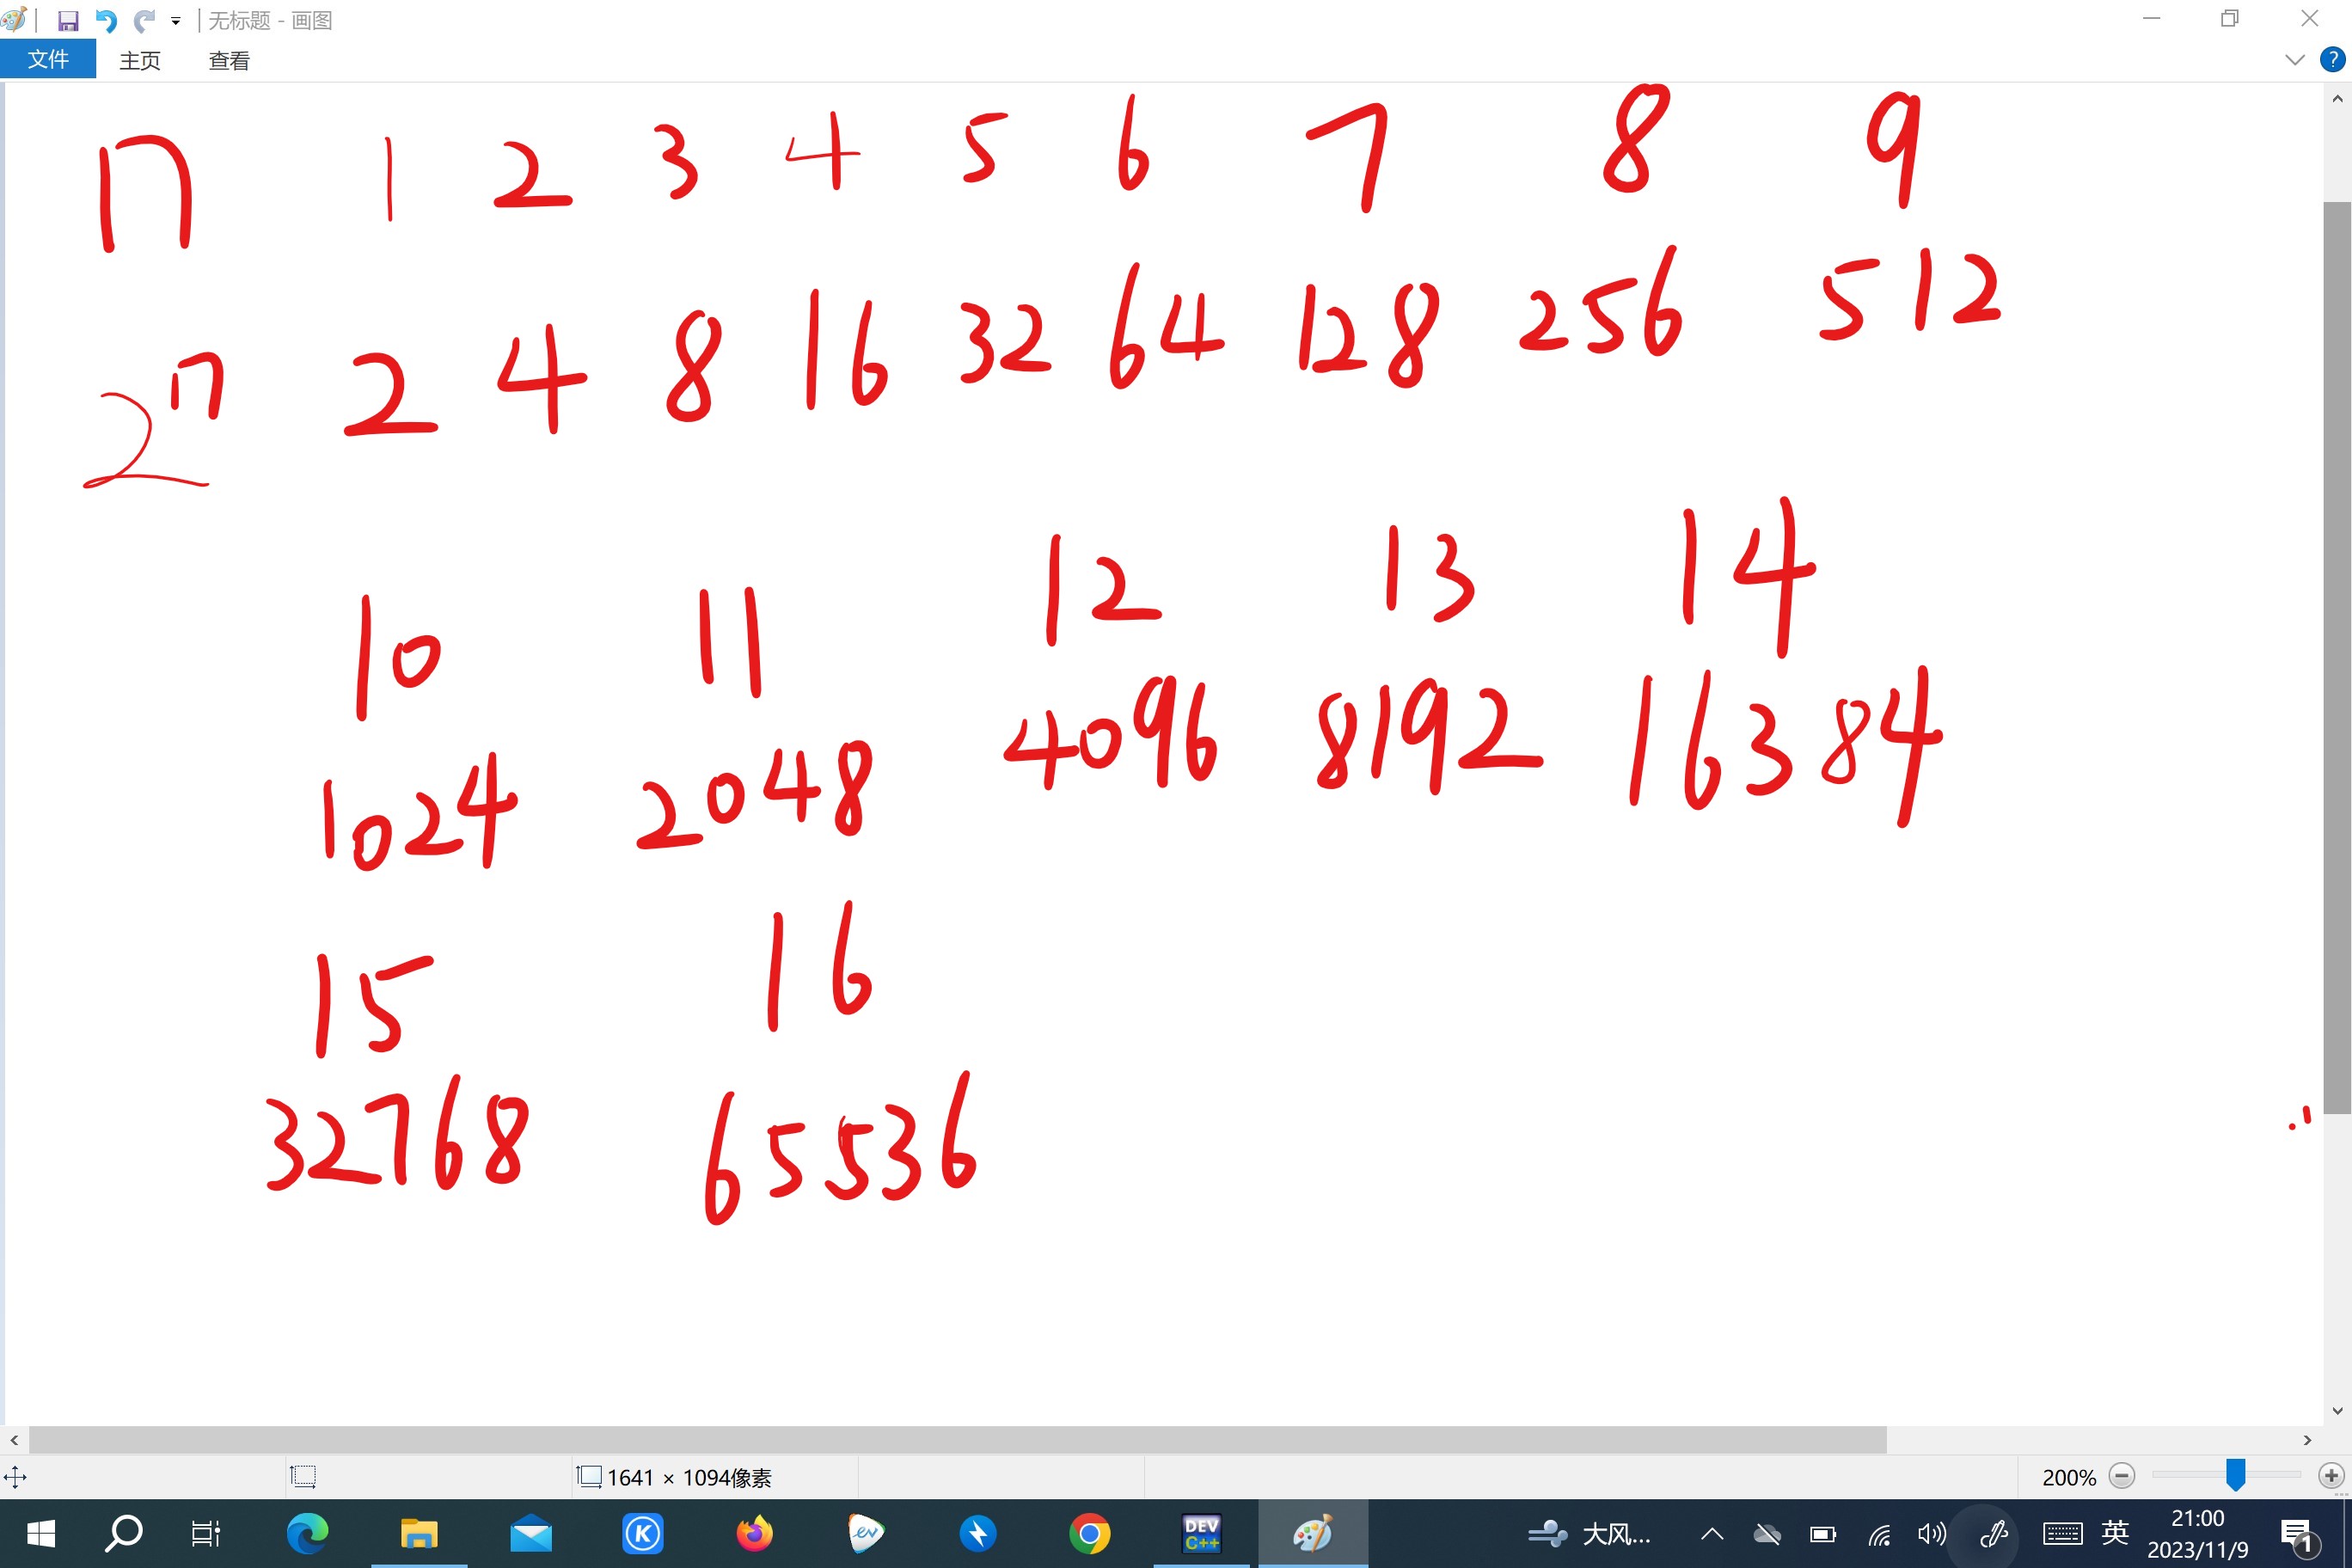 无标题 - 画图
文件 主页 查看
n 1 2 3 4 5 6 7 8 9
2ⁿ 2 4 8 16 32 64 128 256 512
10 11 12 13 14
1024 2048 4096 8192 16384
15 16
32768 65536
1641 × 1094像素 200%
大风... 英 21:00
2023/11/9 1
DEV
C++
K
ev
?